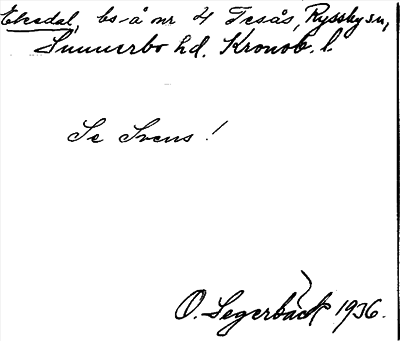 Ekedal, bs-å nr 4 Tesås, Ryssby sn,
Sunnerbo hd. Kronob. l.
Se Svens!
O. Segerbäck 1936.